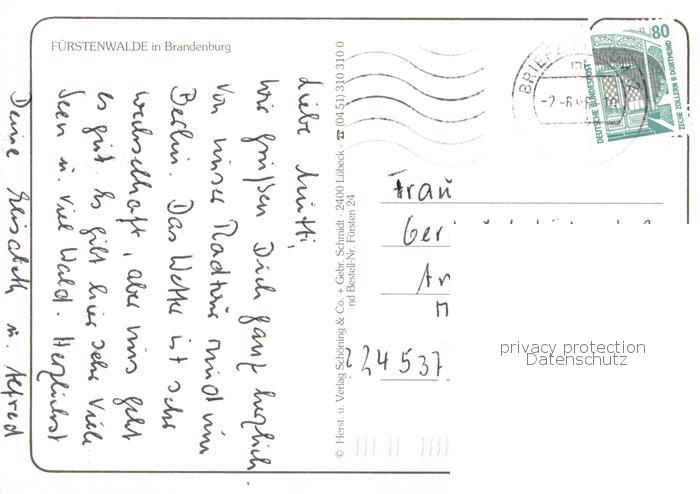 FÜRSTENWALDE in Brandenburg
Liebe Mutti,
wir grüßen Dich ganz herzlich
von unserer Radtour rund um
Berlin. Das Wetter ist sehr
wechselhaft, aber uns geht
es gut. Es gibt hier sehr viele
Seen u. viel Wald. Herzlichst
Deine Elisabeth u. Alfred
© Herst. u. Verlag Schöning & Co. + Gebr. Schmidt · 2400 Lübeck · ☎ (04 51) 310 310 0
nd Bestell-Nr. Fürsten 24
BRIEFZ
-2.-6.9
DEUTSCHE BUNDESPOST
80
ZECHE ZOLLERN II DORTMUND
Frau
Ger
224537
privacy protection
Datenschutz